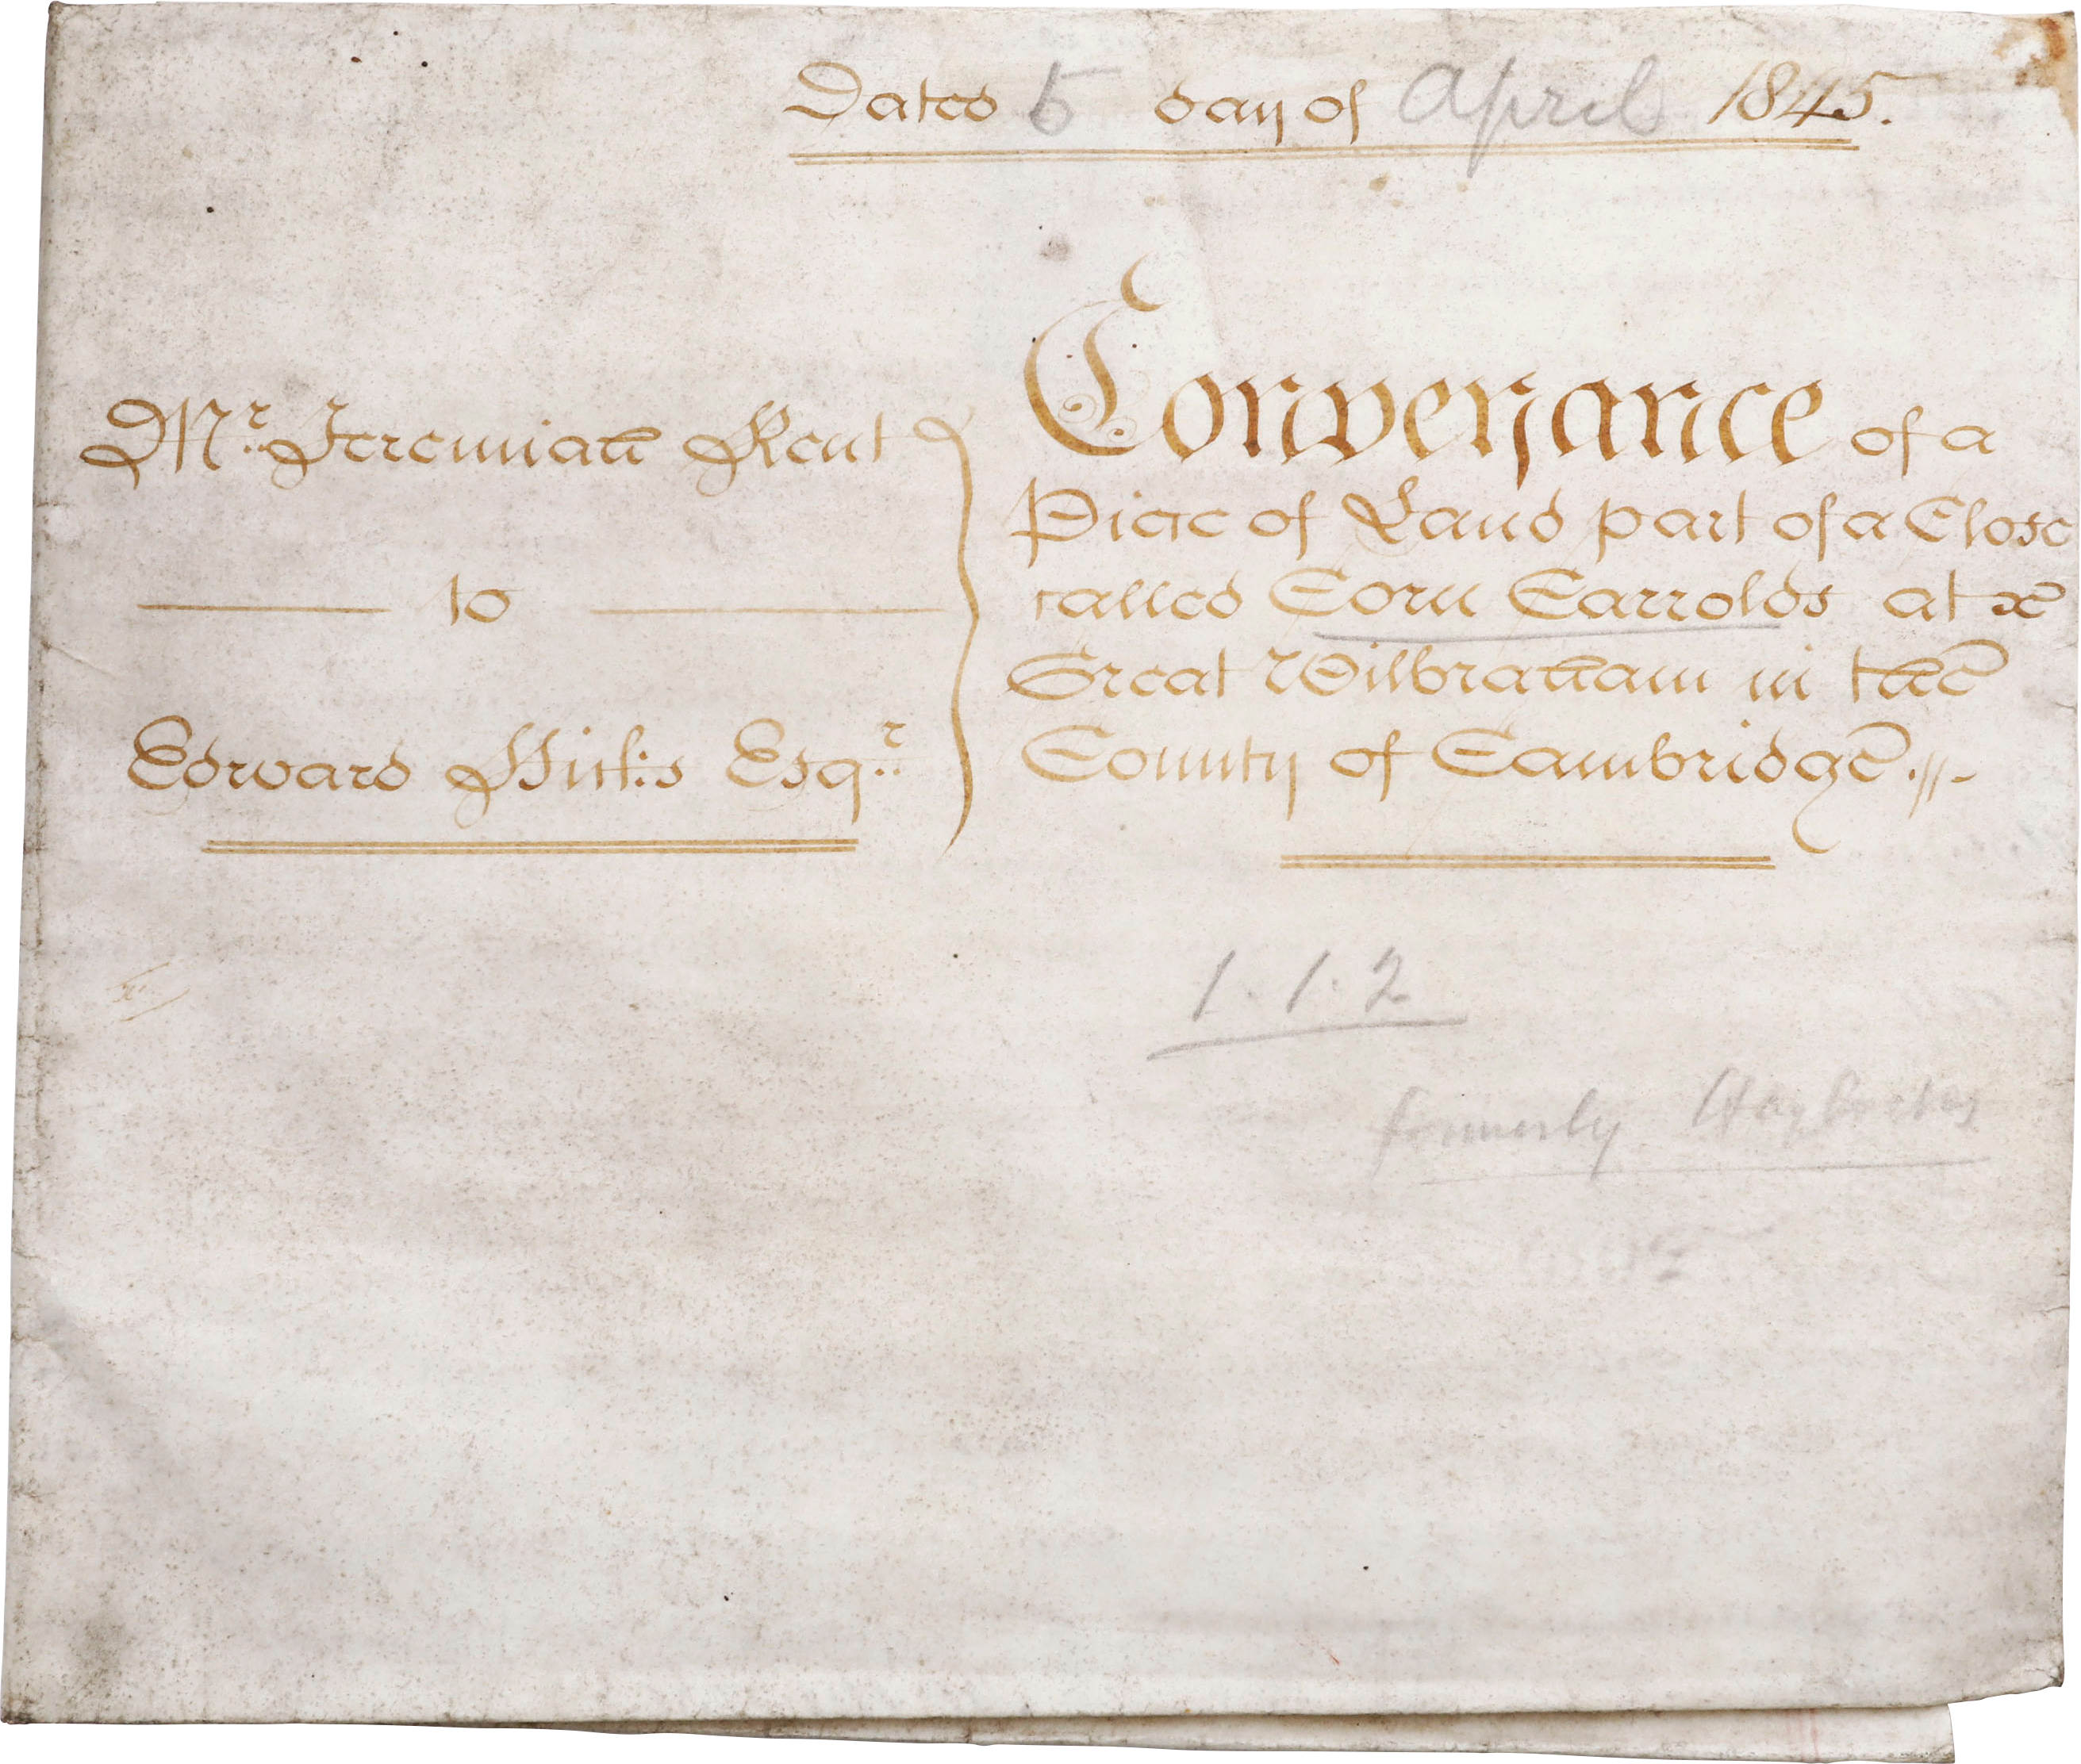 Dated 5 day of April 1845.
Mr. Jeremiah Kent
to
Edward Hicks Esqr.
Conveyance of a
Piece of Land part of a Close
called Corn Carrolds at
Great Wilbraham in the
County of Cambridge
1. 1. 2
formerly